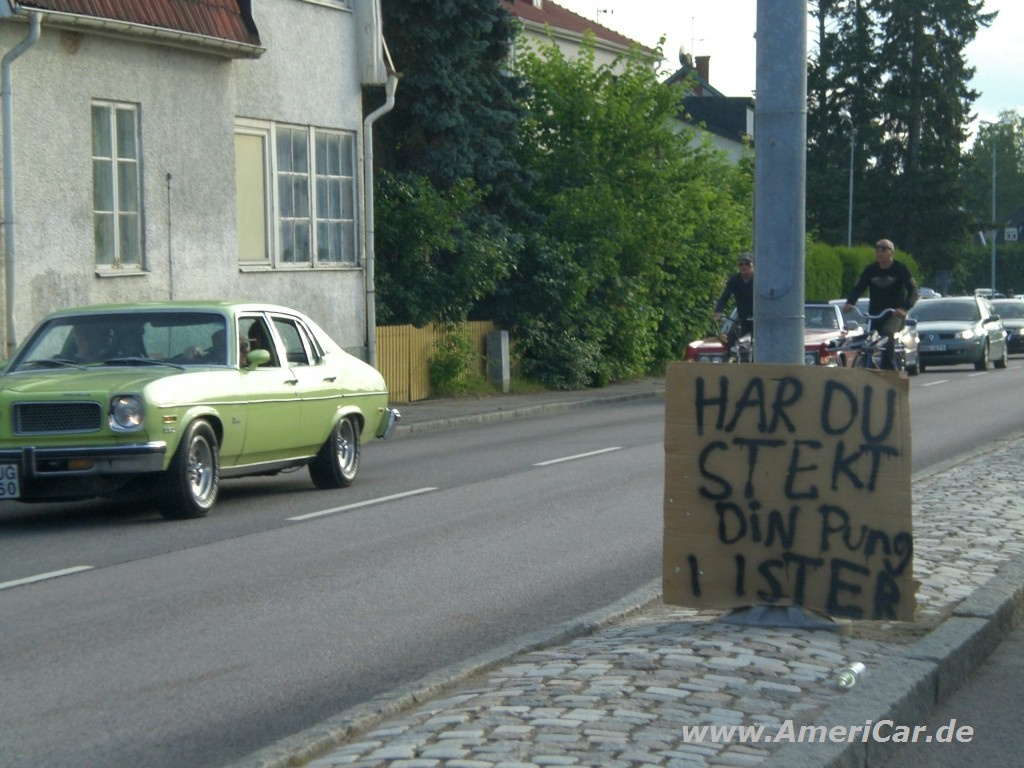 HAR DU
STEKT
DiN Pung
I ISTER
UG
60
www.AmeriCar.de